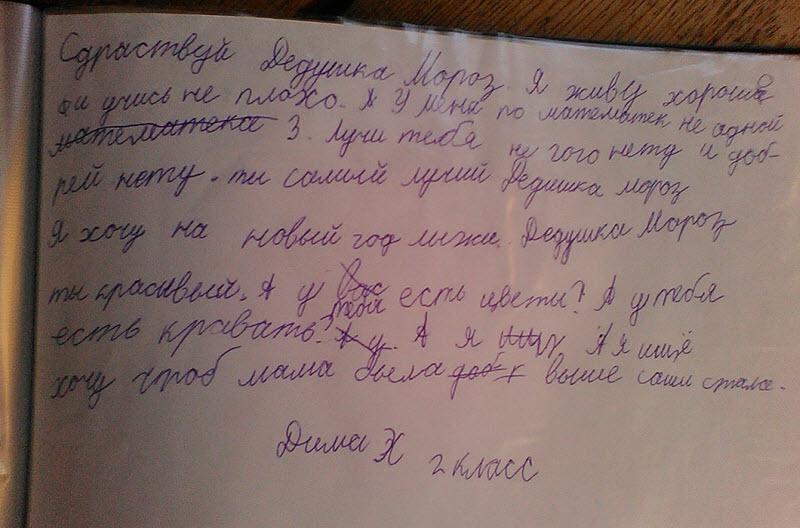 Сдраствуй Дедушка Мороз. Я живу хорошо
и учись не плохо. А У меня по математек не одной
математека 3. Лучи тебя не гого нету и доб-
рей нету. ты самый лучий Дедушка мороз
Я хочу на новый год лыжи. Дедушка Мороз
ты красивый. А у вас тебя есть цветы? А у тебя
есть кравать? А у. А я ищу А я ищё
хочу чтоб мама была доб выше саши стала.
Дима Х
2 класс